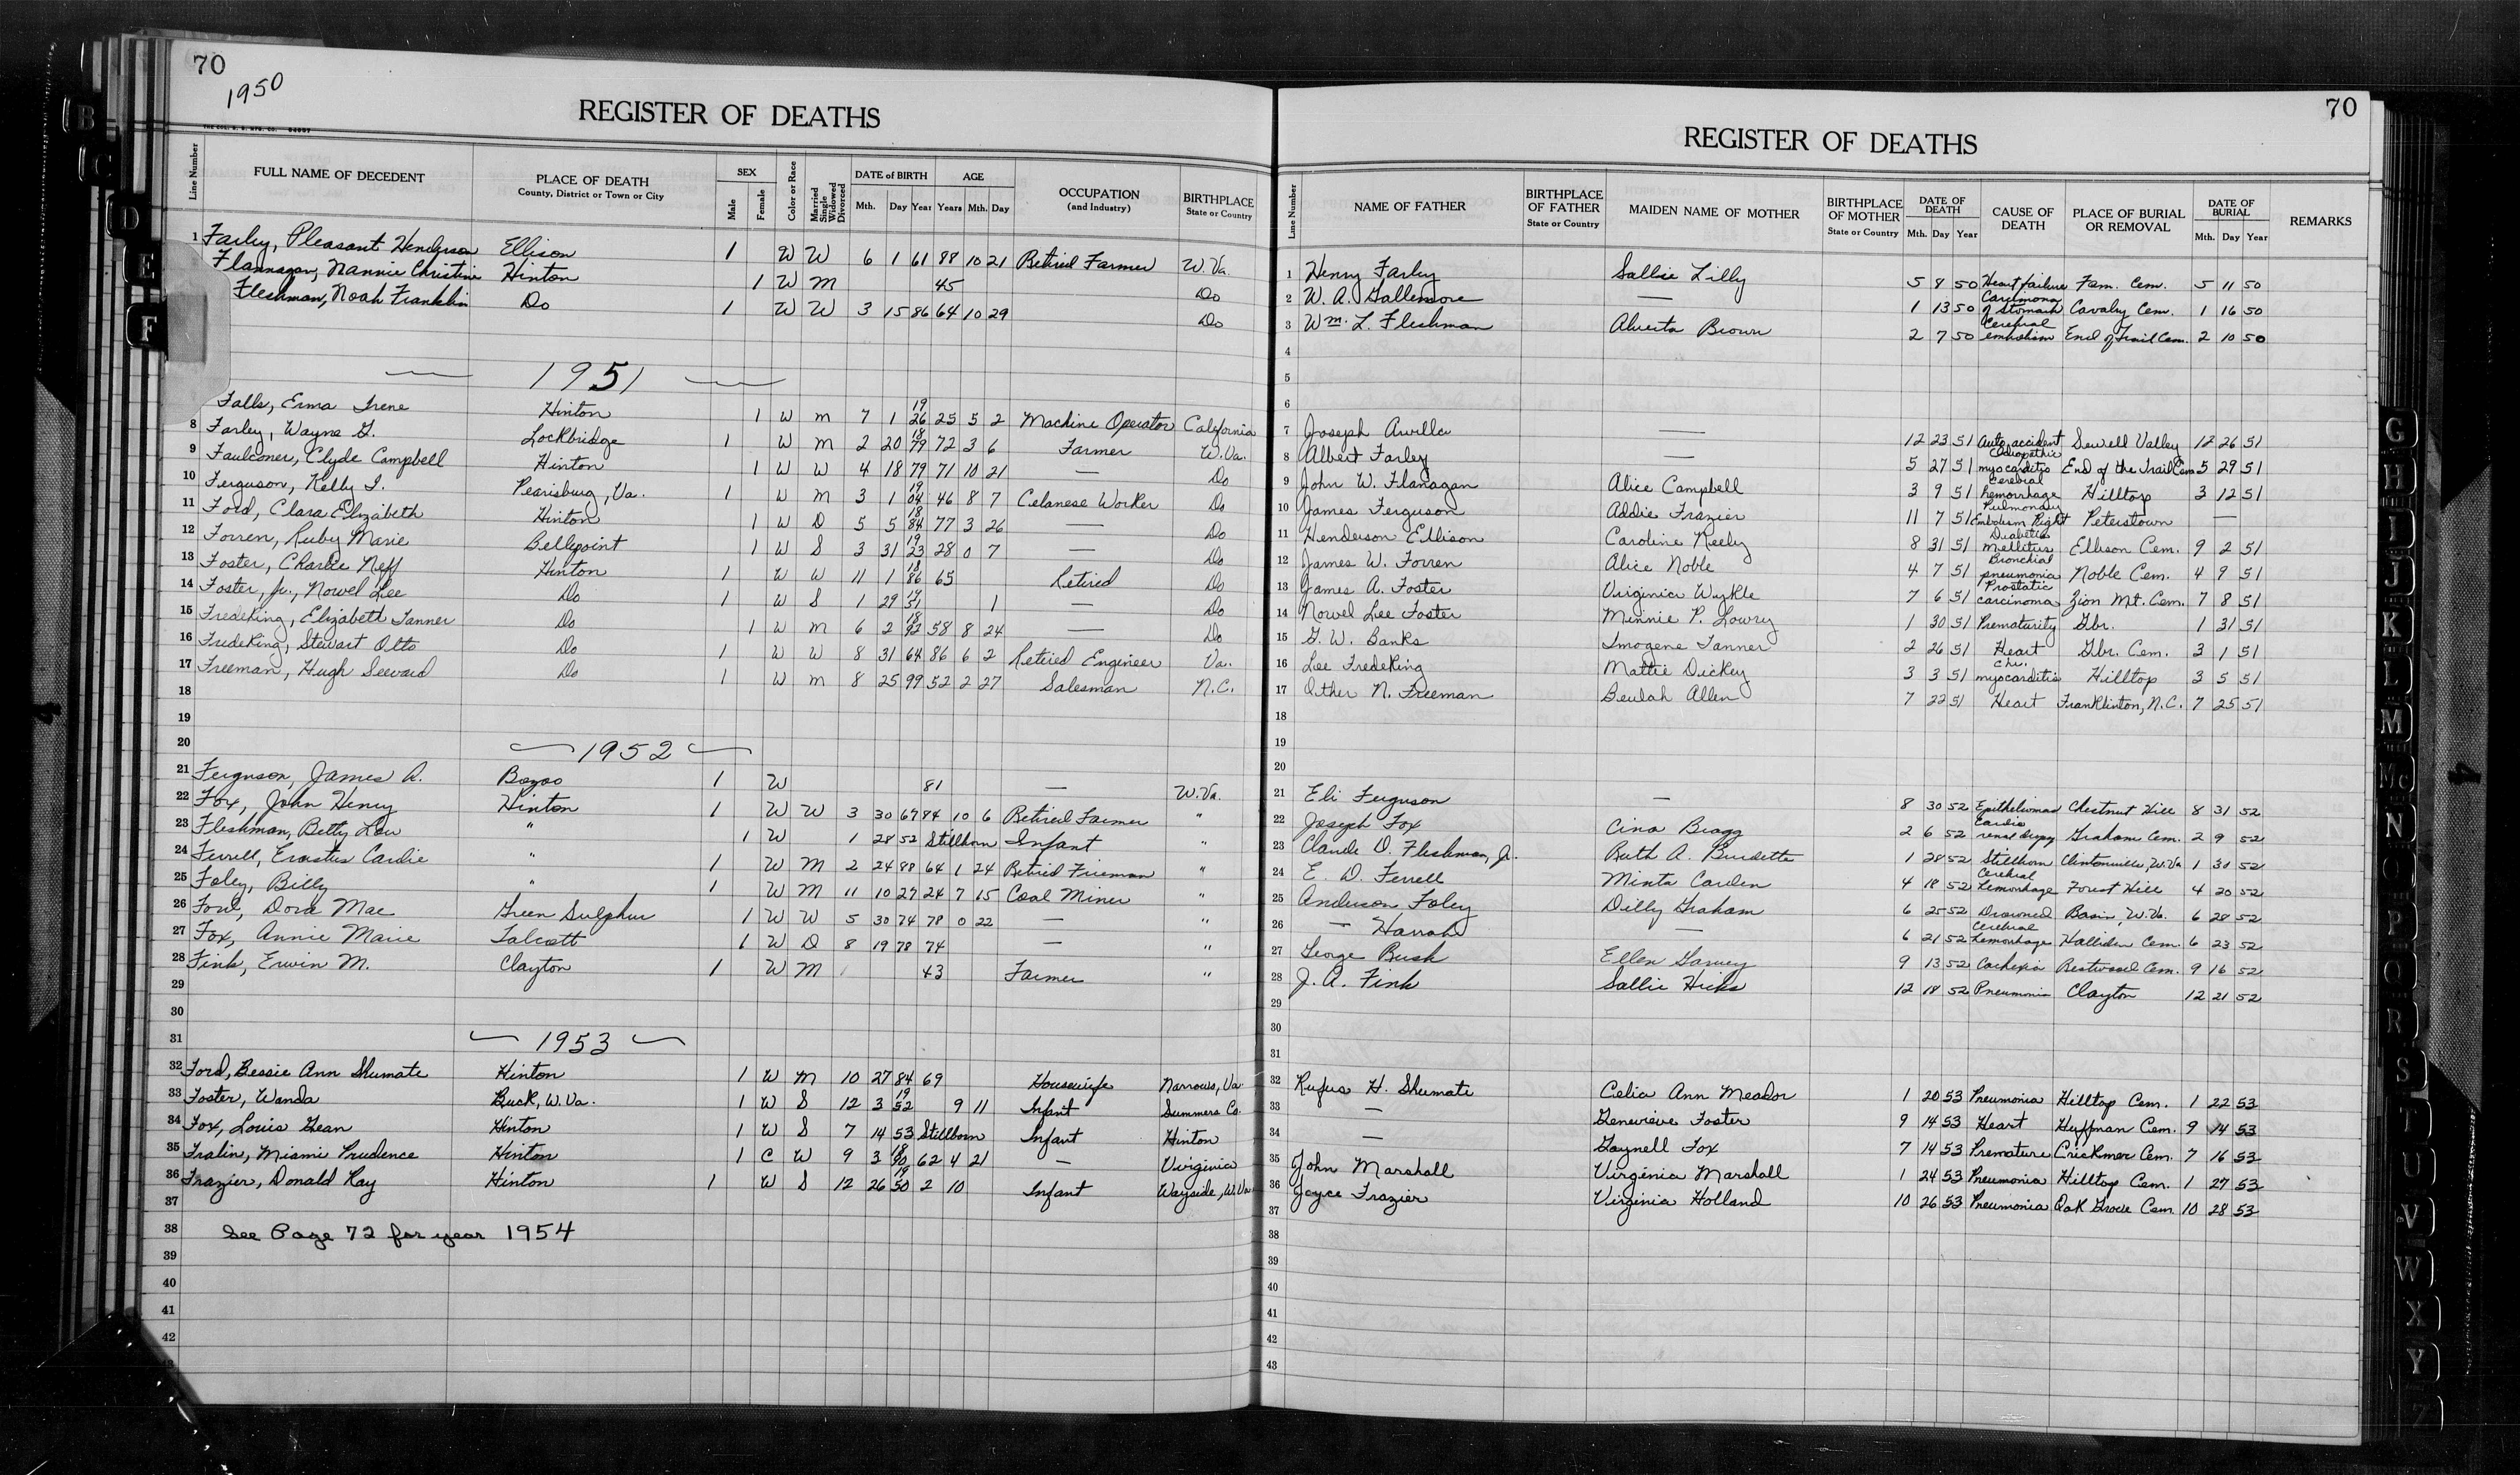 70
1950
REGISTER OF DEATHS
Line Number FULL NAME OF DECEDENT PLACE OF DEATH County, District or Town or City SEX Male Female Color or Race Married Single Widowed Divorced DATE of BIRTH Mth. Day Year AGE Years Mth. Day OCCUPATION (and Industry) BIRTHPLACE State or Country
1 Farley, Pleasant Henderson Ellison 1 W W 6 1 61 88 10 21 Retired Farmer W. Va.
Flannagan, Nannie Christine Hinton 1 W M 45 Do
Fleshman, Noah Franklin Do 1 W W 3 15 86 64 10 29 Do
1951
Falls, Erma Irene Hinton 1 W M 7 1 1926 25 5 2 Machine Operator California
8 Farley, Wayne G. Lockbridge 1 W M 2 20 1879 72 3 6 Farmer W. Va.
9 Faulconer, Clyde Campbell Hinton 1 W W 4 18 79 71 10 21 — Do
10 Ferguson, Kelly I. Pearisburg, Va. 1 W M 3 1 1904 46 8 7 Celanese Worker Do
11 Ford, Clara Elizabeth Hinton 1 W D 5 5 1884 77 3 26 — Do
12 Forren, Ruby Marie Bellepoint 1 W S 3 31 1923 28 0 7 — Do
13 Foster, Charlie Neff Hinton 1 W W 11 1 1886 65 Retired Do
14 Foster, Jr., Nowel Lee Do 1 W S 1 29 1951 1 — Do
15 Fredeking, Elizabeth Tanner Do 1 W M 6 2 1892 58 8 24 — Do
16 Fredeking, Stewart Otto Do 1 W W 8 31 64 86 6 2 Retired Engineer Va.
17 Freeman, Hugh Seward Do 1 W M 8 25 99 52 2 27 Salesman N.C.
18
19
20 1952
21 Ferguson, James A. Bozoo 1 W 81 — W. Va.
22 Fox, John Henry Hinton 1 W W 3 30 67 84 10 6 Retired Farmer "
23 Fleshman, Betty Lou " 1 W 1 28 52 Stillborn Infant "
24 Ferrell, Erastus Cardie " 1 W M 2 24 88 64 1 24 Retired Fireman "
25 Foley, Billy " 1 W M 11 10 27 24 7 15 Coal Miner "
26 Ford, Dora Mae Green Sulphur 1 W W 5 30 74 78 0 22 — "
27 Fox, Annie Marie Talcott 1 W D 8 19 78 74 — "
28 Fink, Erwin M. Clayton 1 W M 43 Farmer "
29
30
31 1953
32 Ford, Bessie Ann Shumate Hinton 1 W M 10 27 84 69 Housewife Narrows, Va
33 Foster, Wanda Buck, W. Va. 1 W S 12 3 1952 9 11 Infant Summers Co.
34 Fox, Louis Gean Hinton 1 W S 7 14 53 Stillborn Infant Hinton
35 Fralin, Miami Prudence Hinton 1 C W 9 3 1890 62 4 21 — Virginia
36 Frazier, Donald Ray Hinton 1 W S 12 26 1950 2 10 Infant Wayside, W. Va
37
38 See Page 72 for year 1954
39
40
41
42
70
REGISTER OF DEATHS
Line Number NAME OF FATHER BIRTHPLACE OF FATHER State or Country MAIDEN NAME OF MOTHER BIRTHPLACE OF MOTHER State or Country DATE OF DEATH Mth. Day Year CAUSE OF DEATH PLACE OF BURIAL OR REMOVAL DATE OF BURIAL Mth. Day Year REMARKS
1 Henry Farley Sallie Lilly 5 8 50 Heart failure Fam. Cem. 5 11 50
2 W. A. Gallemore — 1 13 50 Carcinoma of stomach Cavalry Cem. 1 16 50
3 Wm. L. Fleshman Alverta Brown 2 7 50 Cerebral embolism End of Trail Cem. 2 10 50
4
5
6
7 Joseph — 12 23 51 Auto accident Sewell Valley 12 26 51
8 Albert Farley — 5 27 51 Idiopathic myocarditis End of the Trail Cem 5 29 51
9 John W. Flanagan Alice Campbell 3 9 51 Cerebral hemorrhage Hilltop 3 12 51
10 James Ferguson Addie Frazier 11 7 51 Pulmonary Embolism Right Peterstown —
11 Henderson Ellison Caroline Neely 8 31 51 Diabetes mellitus Ellison Cem. 9 2 51
12 James W. Forren Alice Noble 4 7 51 Bronchial pneumonia Noble Cem. 4 9 51
13 James A. Foster Virginia Wykle 7 6 51 Prostatic carcinoma Zion Mt. Cem. 7 8 51
14 Nowel Lee Foster Minnie P. Lowry 1 30 51 Prematurity Gbr. 1 31 51
15 G. W. Banks Imogene Tanner 2 26 51 Heart Gbr. Cem. 3 1 51
16 Lee Fredeking Mattie Dickey 3 3 51 Chr. myocarditis Hilltop 3 5 51
17 Other N. Freeman Beulah Allen 7 22 51 Heart Franklinton, N.C. 7 25 51
18
19
20
21 Eli Ferguson — 8 30 52 Epithelioma Chestnut Hill 8 31 52
22 Joseph Fox Cina Bragg 2 6 52 Cardio renal dropsy Graham Cem. 2 9 52
23 Claude D. Fleshman, Jr. Ruth A. Burdette 1 28 52 Stillborn Clintonville, W. Va 1 30 52
24 E. D. Ferrell Minta Carden 4 18 52 Cerebral Hemorrhage Forest Hill 4 20 52
25 Anderson Foley Dilly Graham 6 25 52 Drowned Basin, W. Va. 6 28 52
26 — Harrah — 6 21 52 Cerebral Hemorrhage Cem. 6 23 52
27 George Bush Ellen Garvey 9 13 52 Cachexia Restwood Cem. 9 16 52
28 J. A. Fink Sallie Hicks 12 18 52 Pneumonia Clayton 12 21 52
29
30
31
32 Rufus H. Shumate Celia Ann Meador 1 20 53 Pneumonia Hilltop Cem. 1 22 53
33 — Genevieve Foster 9 14 53 Heart Huffman Cem. 9 14 53
34 — Gaynell Fox 7 14 53 Premature Crickmer Cem. 7 16 53
35 John Marshall Virginia Marshall 1 24 53 Pneumonia Hilltop Cem. 1 27 53
36 Joyce Frazier Virginia Holland 10 26 53 Pneumonia Oak Grove Cem. 10 28 53
37
38
39
40
41
42
43
B
C
D
E
F
G
H
I
J
K
L
M
Mc
N
O
P
Q
R
S
T
U
V
W
X
Y
Z